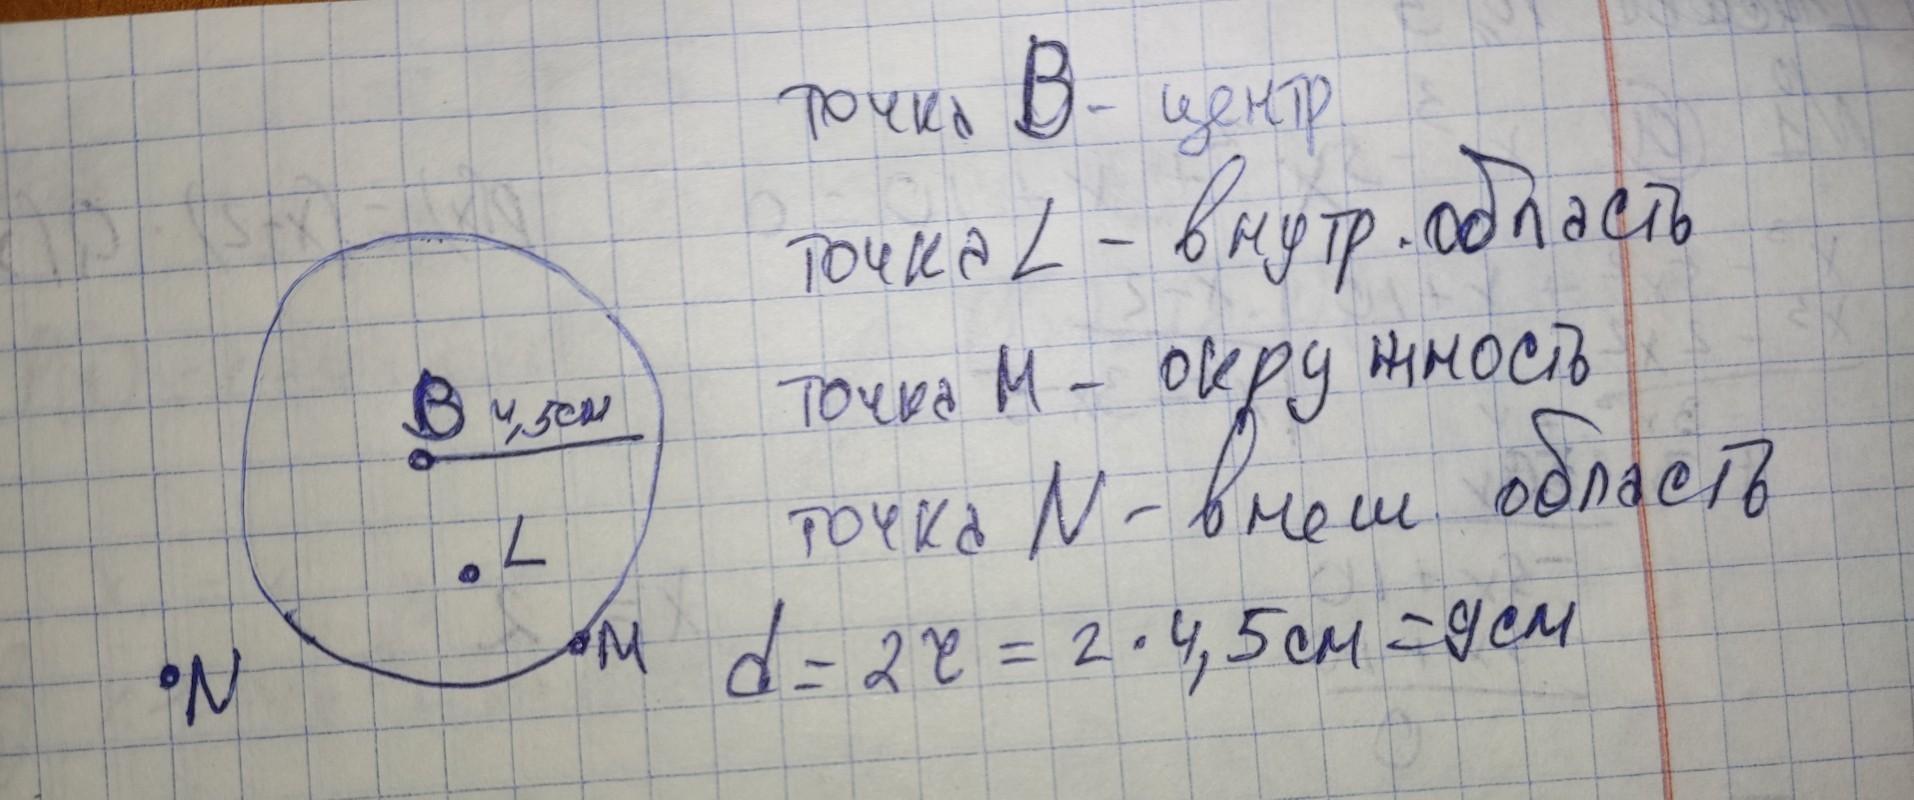 точка B - центр
точка L - внутр. область
точка M - окружность
точка N - внеш. область
d = 2r = 2 · 4,5 см = 9 см
B 4,5 см
L
M
N